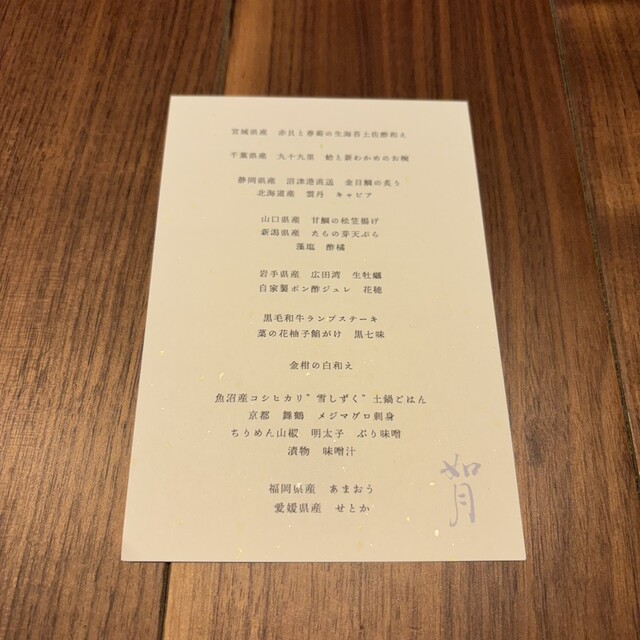 宮城県産　赤貝と春菊の生海苔土佐酢和え
千葉県産　九十九里　蛤と新わかめのお椀
静岡県産　沼津港直送　金目鯛の炙り
北海道産　雲丹　キャビア
山口県産　甘鯛の松笠揚げ
新潟県産　たらの芽天ぷら
藻塩　酢橘
岩手県産　広田湾　生牡蠣
自家製ポン酢ジュレ　花穂
黒毛和牛ランプステーキ
菜の花柚子餡がけ　黒七味
金柑の白和え
魚沼産コシヒカリ"雪しずく"土鍋ごはん
京都　舞鶴　メジマグロ刺身
ちりめん山椒　明太子　ぶり味噌
漬物　味噌汁
福岡県産　あまおう
愛媛県産　せとか
如月